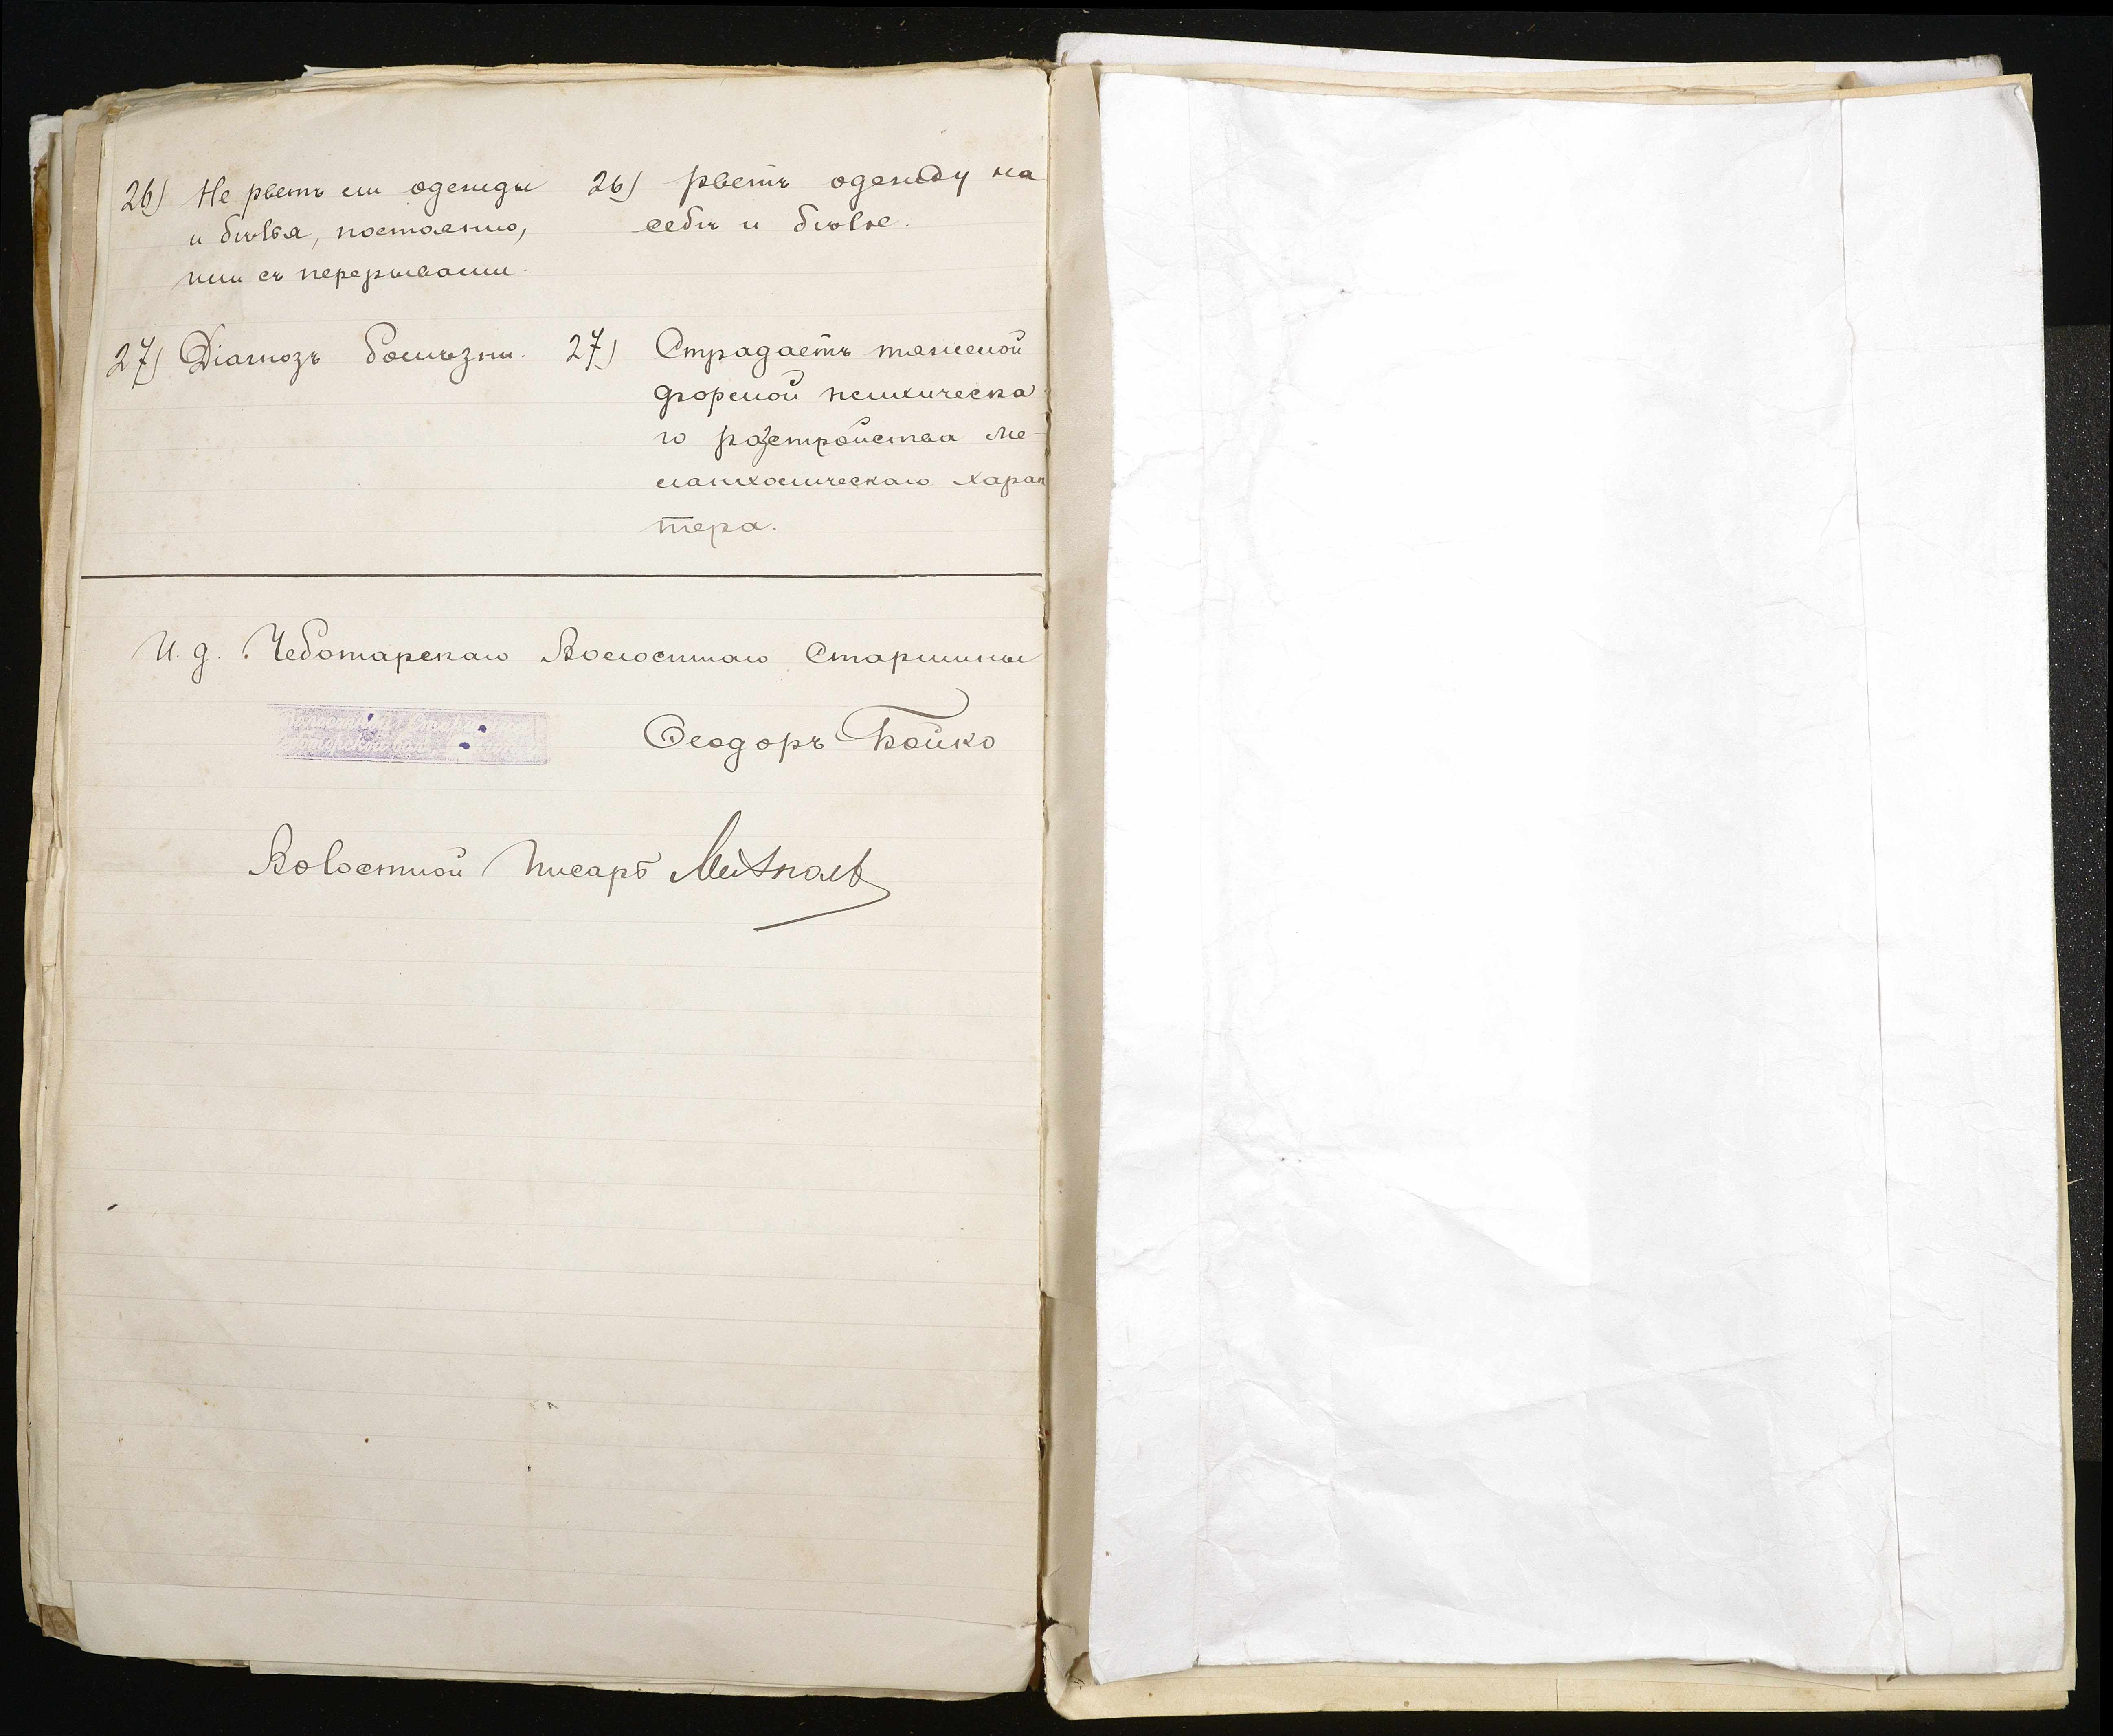 26) Не рветъ ли одежды
и бѣлья, постоянно,
или съ перерывами.
26) рветъ одежду на
себѣ и бѣлье.
27) Діагнозъ болѣзни.
27) Страдаетъ тяжелой
формой психическа
го разстройства ме-
ланхолическаго харак
тера.
И. д. Чеботарскаго Волостнаго Старшины
Ѳеодоръ Бойко
Волостной Писарь